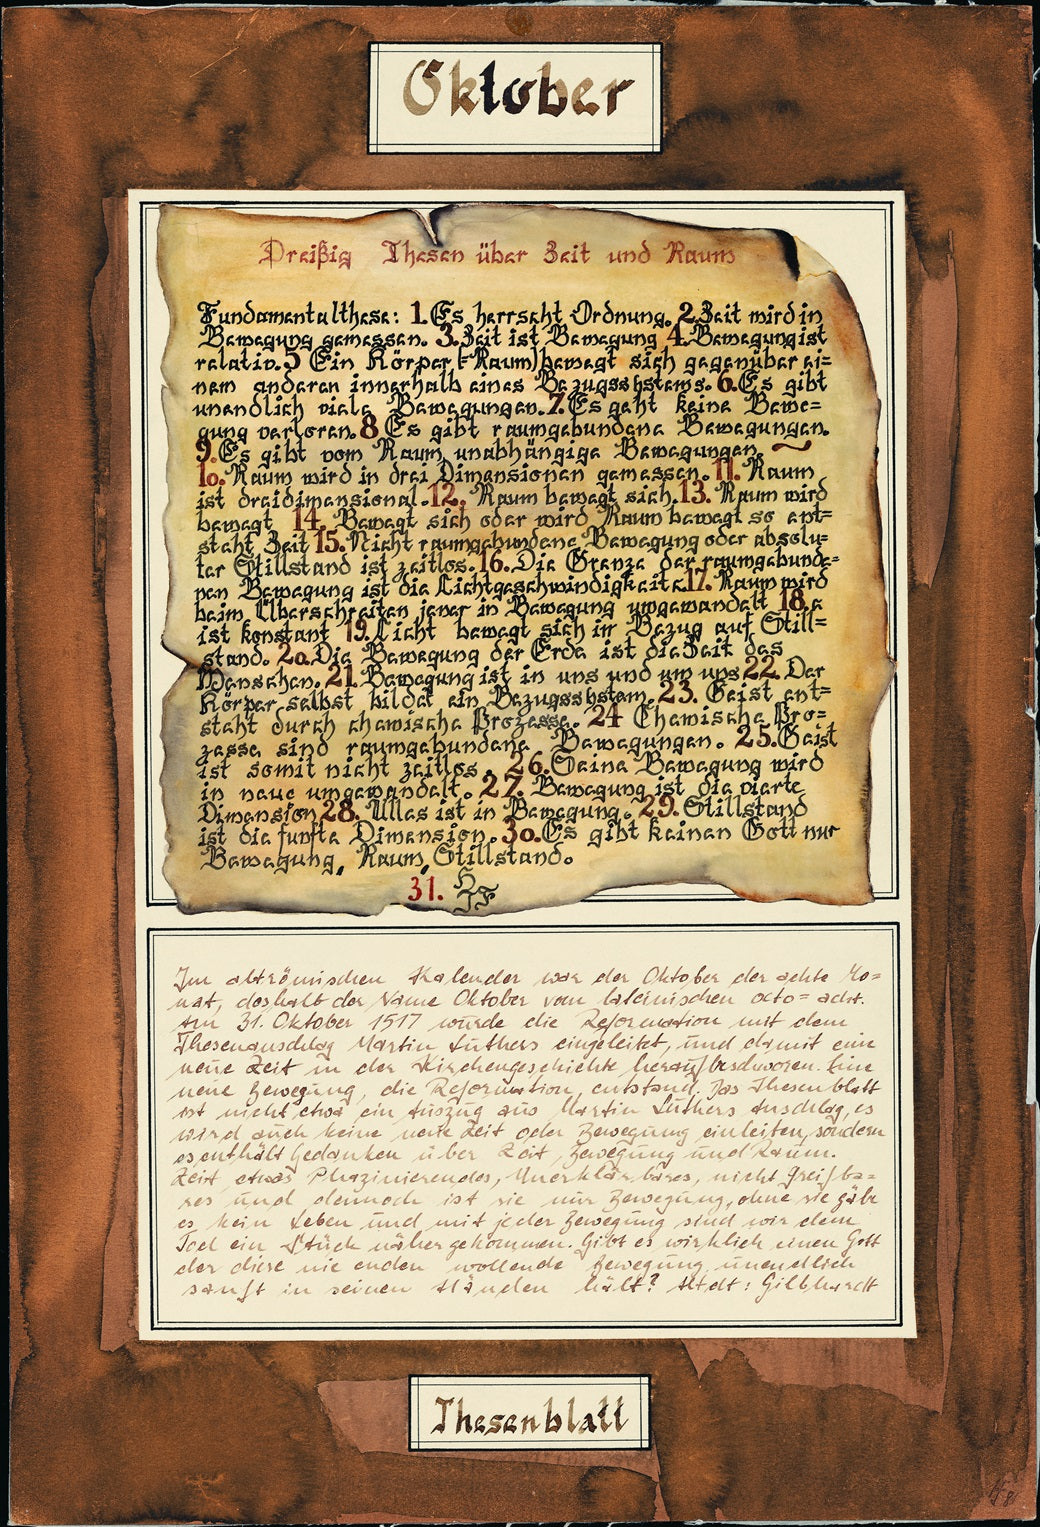 Oktober
Dreißig Thesen über Zeit und Raum
Fundamentalthese: 1. Es herrscht Ordnung. 2 Zeit wird in
Bewegung gemessen. 3. Zeit ist Bewegung 4. Bewegung ist
relativ. 5 Ein Körper (=Raum) bewegt sich gegenüber ei=
nem anderen innerhalb eines Bezugssystems. 6. Es gibt
unendlich viele Bewegungen. 7. Es geht keine Bewe=
gung verloren. 8 Es gibt raumgebundene Bewegungen.
9. Es gibt vom Raum unabhängige Bewegungen. ~
10. Raum wird in drei Dimensionen gemessen. 11. Raum
ist dreidimensional. 12. Raum bewegt sich. 13. Raum wird
bewegt 14. Bewegt sich oder wird Raum bewegt so ent=
steht Zeit 15. Nicht raumgebundene Bewegung oder absolu=
ter Stillstand ist zeitlos. 16. Die Grenze der raumgebunde=
nen Bewegung ist die Lichtgeschwindigkeit c. 17. Raum wird
beim Überschreiten jener in Bewegung umgewandelt 18. c
ist konstant 19. Licht bewegt sich in Bezug auf Still=
stand. 20. Die Bewegung der Erde ist die Zeit des
Menschen. 21. Bewegung ist in uns und um uns 22. Der
Körper selbst bildet ein Bezugssystem. 23. Geist ent=
steht durch chemische Prozesse. 24 Chemische Pro=
zesse sind raumgebundene Bewegungen. 25. Geist
ist somit nicht zeitlos. 26. Seine Bewegung wird
in neue umgewandelt. 27. Bewegung ist die vierte
Dimension 28. Alles ist in Bewegung. 29. Stillstand
ist die fünfte Dimension. 30. Es gibt keinen Gott nur
Bewegung, Raum, Stillstand.
31.
Im altrömischen Kalender war der Oktober der achte Mo=
nat, deshalb der Name Oktober vom lateinischen octo = acht.
Am 31. Oktober 1517 wurde die Reformation mit dem
Thesenanschlag Martin Luthers eingeleitet, und damit eine
neue Zeit in der Kirchengeschichte heraufbeschworen. Eine
neue Bewegung, die Reformation, entstand. Das Thesenblatt
ist nicht etwa ein Auszug aus Martin Luthers Anschlag, es
wird auch keine neue Zeit oder Bewegung einleiten, sondern
es enthält Gedanken über Zeit, Bewegung und Raum.
Zeit etwas Phazinierendes, Unerklärbares, nicht Greifba=
res und dennoch ist sie nur Bewegung, ohne sie gäbe
es kein Leben und mit jeder Bewegung sind wir dem
Tod ein Stück näher gekommen. Gibt es wirklich einen Gott
der diese nie enden wollende Bewegung unendlich
sanft in seinen Händen hält?
Thesenblatt